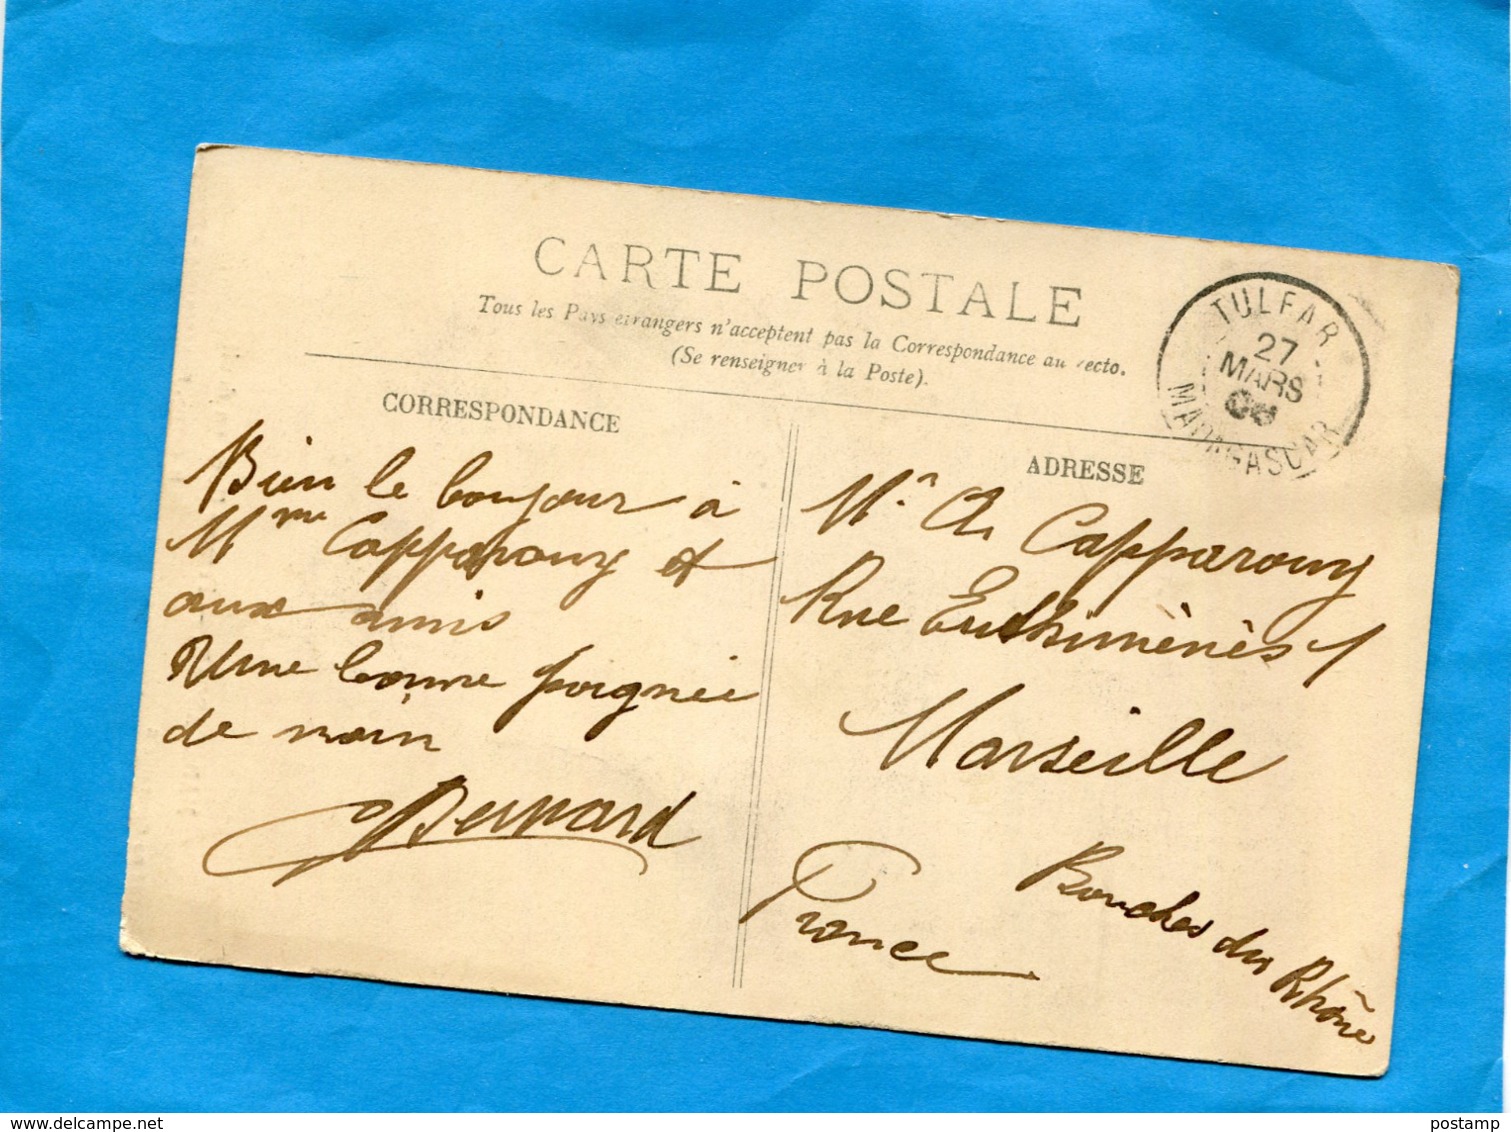 CARTE POSTALE
Tous les Pays étrangers n'acceptent pas la Correspondance au recto.
(Se renseigner à la Poste).
TULEAR
27
MARS
MADAGASCAR
CORRESPONDANCE
Bien le bonjour à
Mme Capparouy et
aux amis
Une bonne poignée
de main
Bernard
ADRESSE
Mr Ch Capparouy
Rue Euthimènès 1
Marseille
Bouches du Rhône
France
postamp